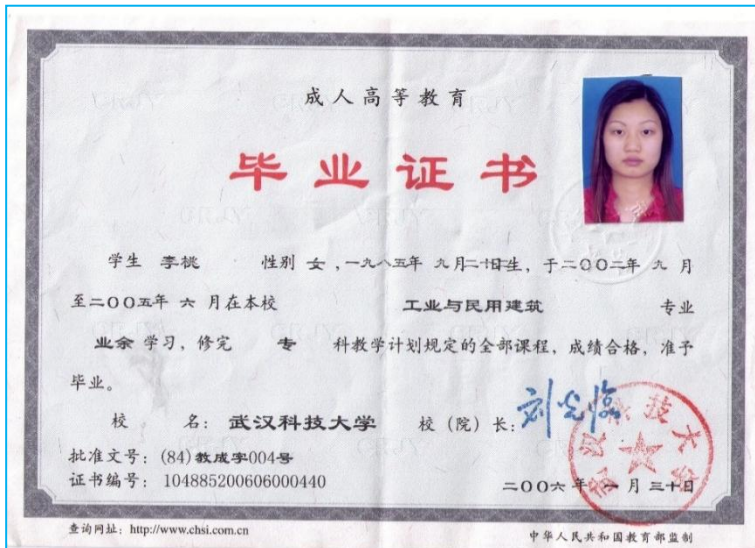 成人高等教育
毕业证书
学生 李桃 性别 女，一九八五年 九月二十日生，于二〇〇二年 九 月
至二〇〇五年 六 月在本校 工业与民用建筑 专业
业余 学习，修完 专 科教学计划规定的全部课程，成绩合格，准予
毕业。
校 名：武汉科技大学 校（院）长：刘光临
批准文号：(84)教成字004号
证书编号：104885200606000440
二〇〇六年 一 月 三十日
查询网址：http://www.chsi.com.cn
中华人民共和国教育部监制